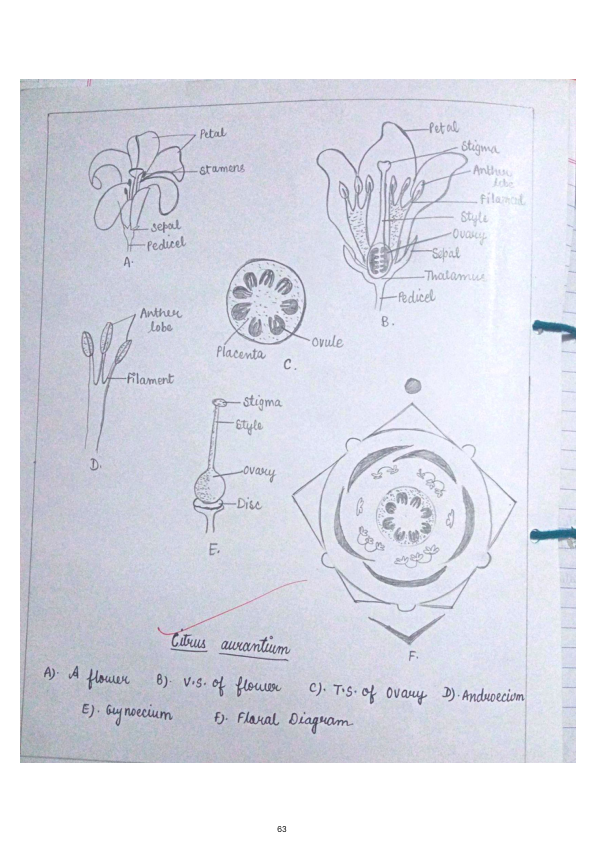 Petal
Stamens
Sepal
Pedicel
A.
Petal
Stigma
Anther
lobe
Filament
Style
Ovary
Sepal
Thalamus
Pedicel
B.
Placenta
Ovule
C.
Anther
lobe
Filament
D.
Stigma
Style
Ovary
Disc
E.
F.
Citrus aurantium
A). A flower B). V.S. of flower C). T.S. of Ovary D). Androecium
E). Gynoecium F). Floral Diagram
63